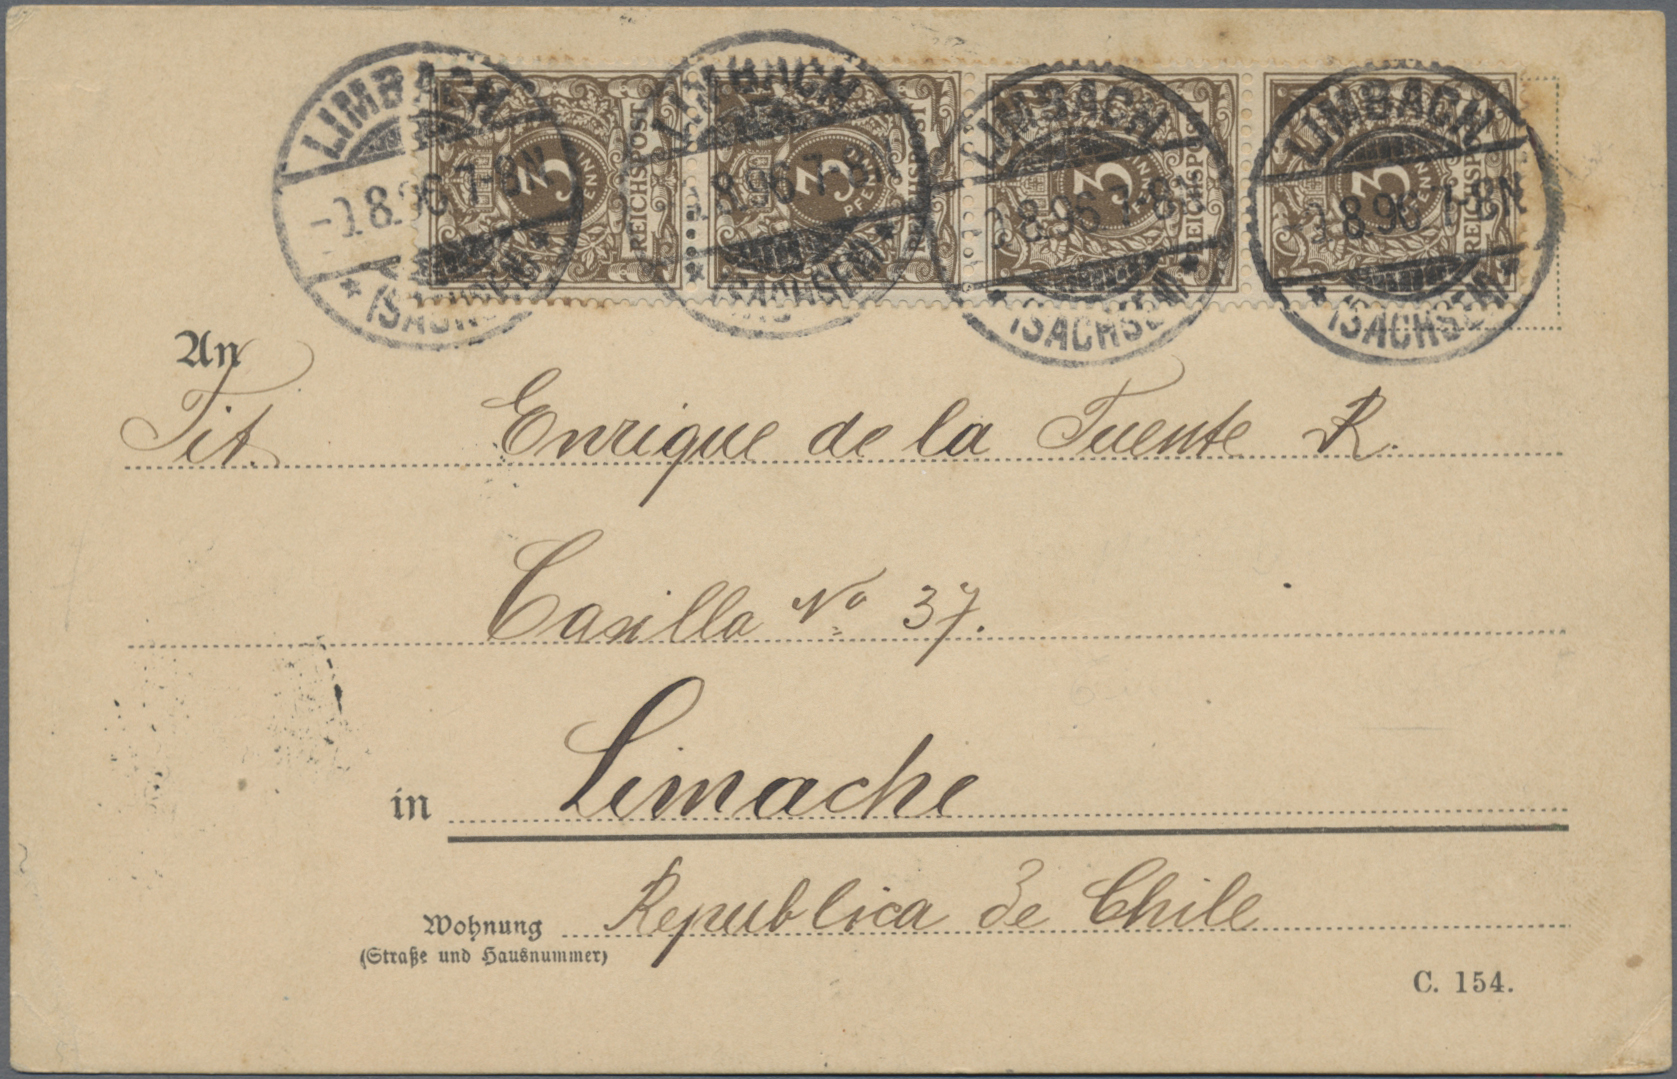 LIMBACH LIMBACH LIMBACH LIMBACH
8.96 7-8N 8.96 7-8N 8.96 7-8N 8.96 7-8N
* (SACHSEN) * * (SACHSEN) * * (SACHSEN) * * (SACHSEN) *
3 PFENNIG REICHSPOST 3 PFENNIG REICHSPOST 3 PFENNIG REICHSPOST 3 PFENNIG REICHSPOST
An
Tit. Enrique de la Fuente R.
Casilla Nº 37.
in Limache
Wohnung Republica de Chile
(Straße und Hausnummer)
C. 154.